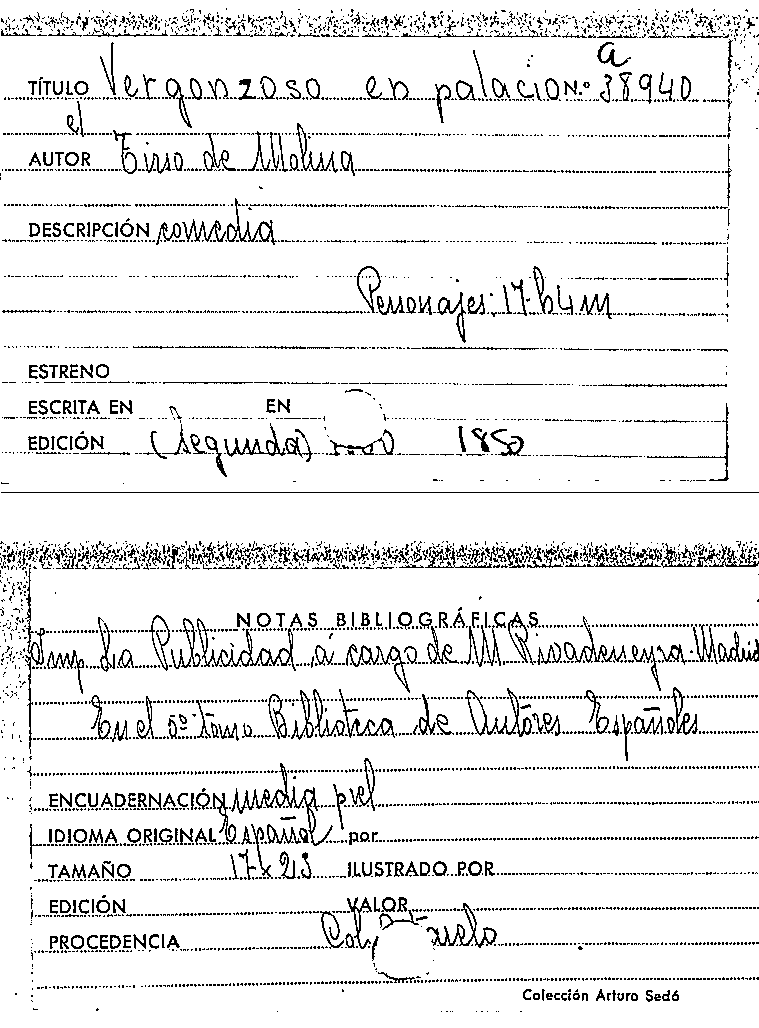 a
TÍTULO Vergonzoso en palacio N.º 38940
el
AUTOR Tirso de Molina
DESCRIPCIÓN comedia
Personajes: 17-h 4 m
ESTRENO
ESCRITA EN EN
EDICIÓN (Segunda) 1850
NOTAS BIBLIOGRÁFICAS
Imp La Publicidad á cargo de M Rivadeneyra-Madrid
En el 5º tomo Biblioteca de Autores Españoles
ENCUADERNACIÓN media piel
IDIOMA ORIGINAL Español por
TAMAÑO 17 x 25 ILUSTRADO POR
EDICIÓN VALOR
PROCEDENCIA
Colección Arturo Sedó